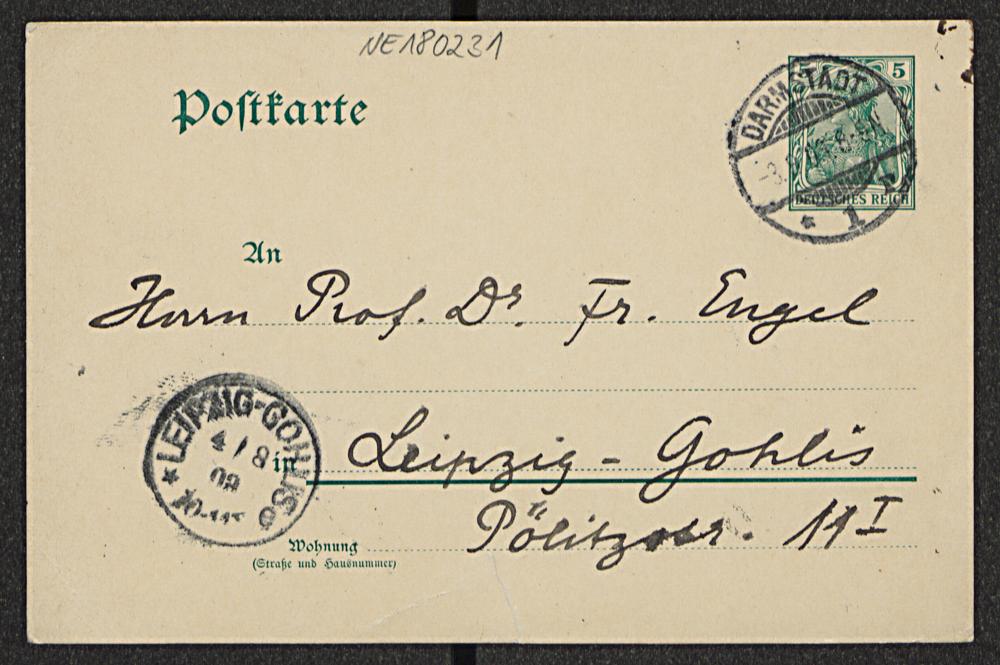 NE180231
Postkarte
5 5
DARMSTADT
* 1
DEUTSCHES REICH
An
Herrn Prof. Dr. Fr. Engel
* LEIPZIG-GOHLIS
4/8
in Leipzig-Gohlis
Pölitzstr. 11 I
Wohnung
(Straße und Hausnummer)